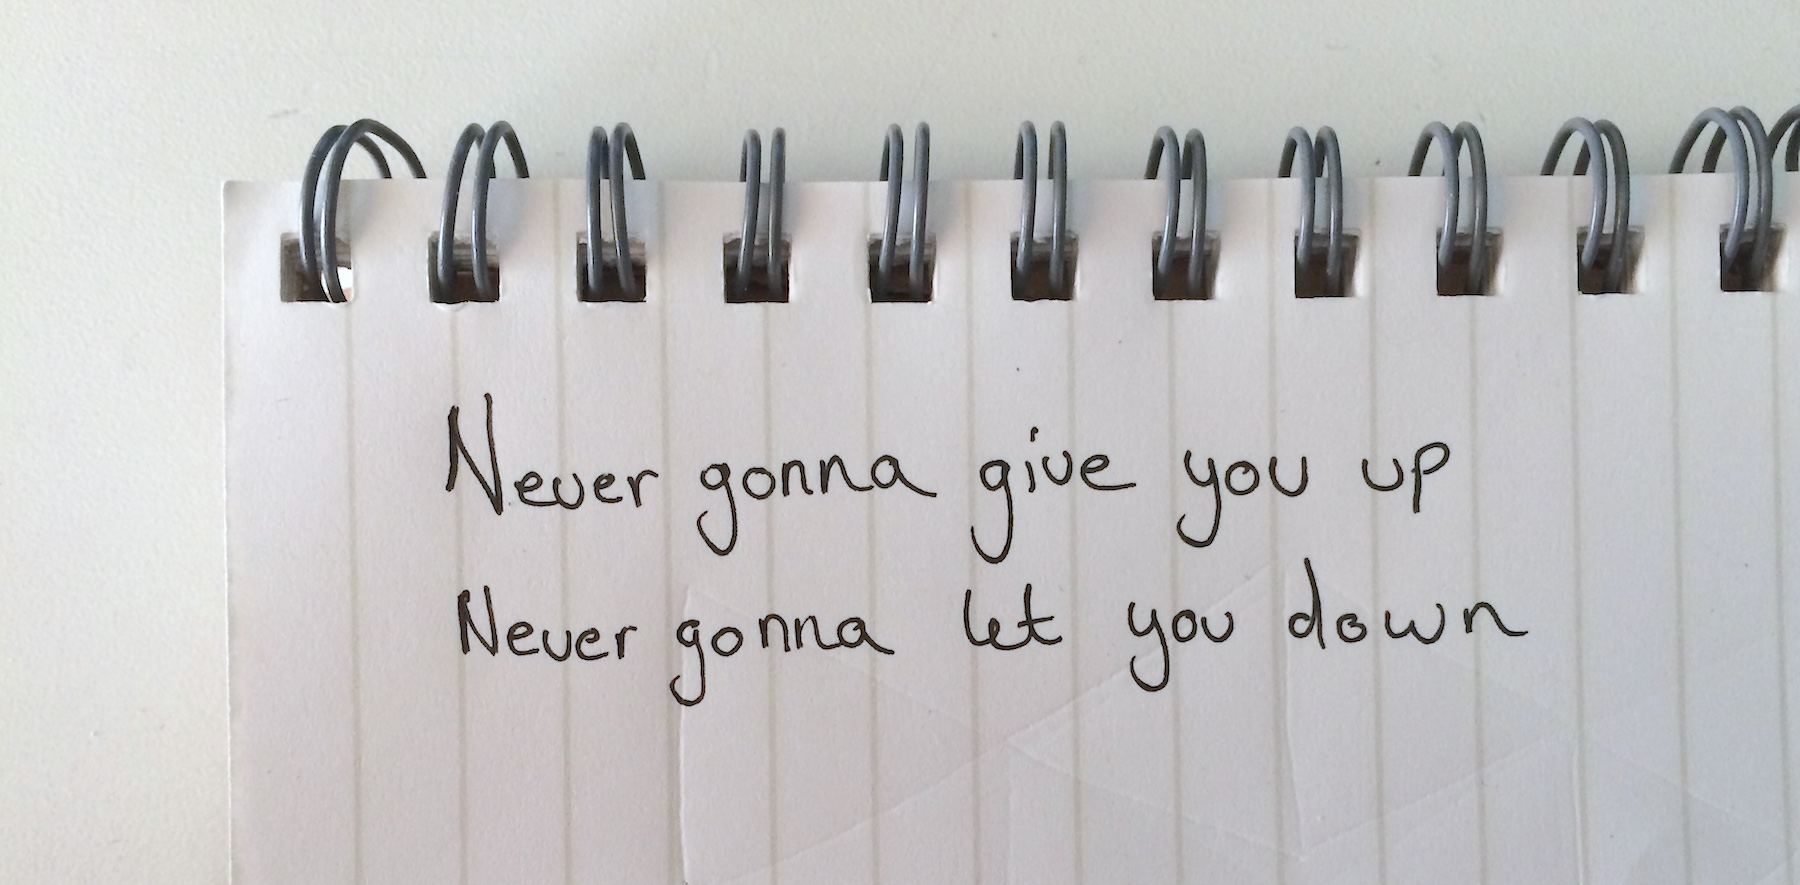 Never gonna give you up
Never gonna let you down